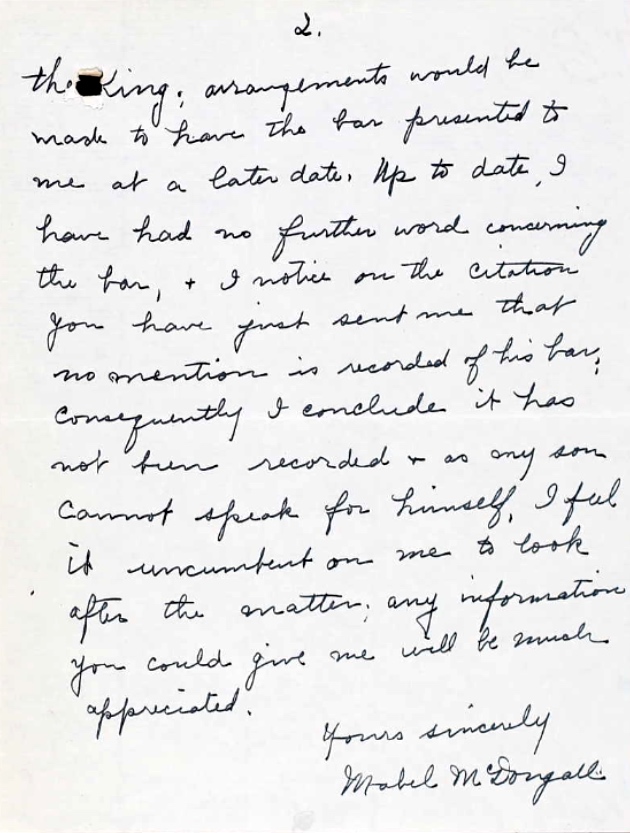 2.
the King; arrangements would be
made to have the bar presented to
me at a later date. Up to date, I
have had no further word concerning
the bar, + I notice on the citation
you have just sent me that
no mention is recorded of his bar;
Consequently I conclude it has
not been recorded + as my son
cannot speak for himself, I feel
it uncumbent on me to look
after the matter; any information
you could give me will be much
appreciated.
Yours sincerely
Mabel McDougall.